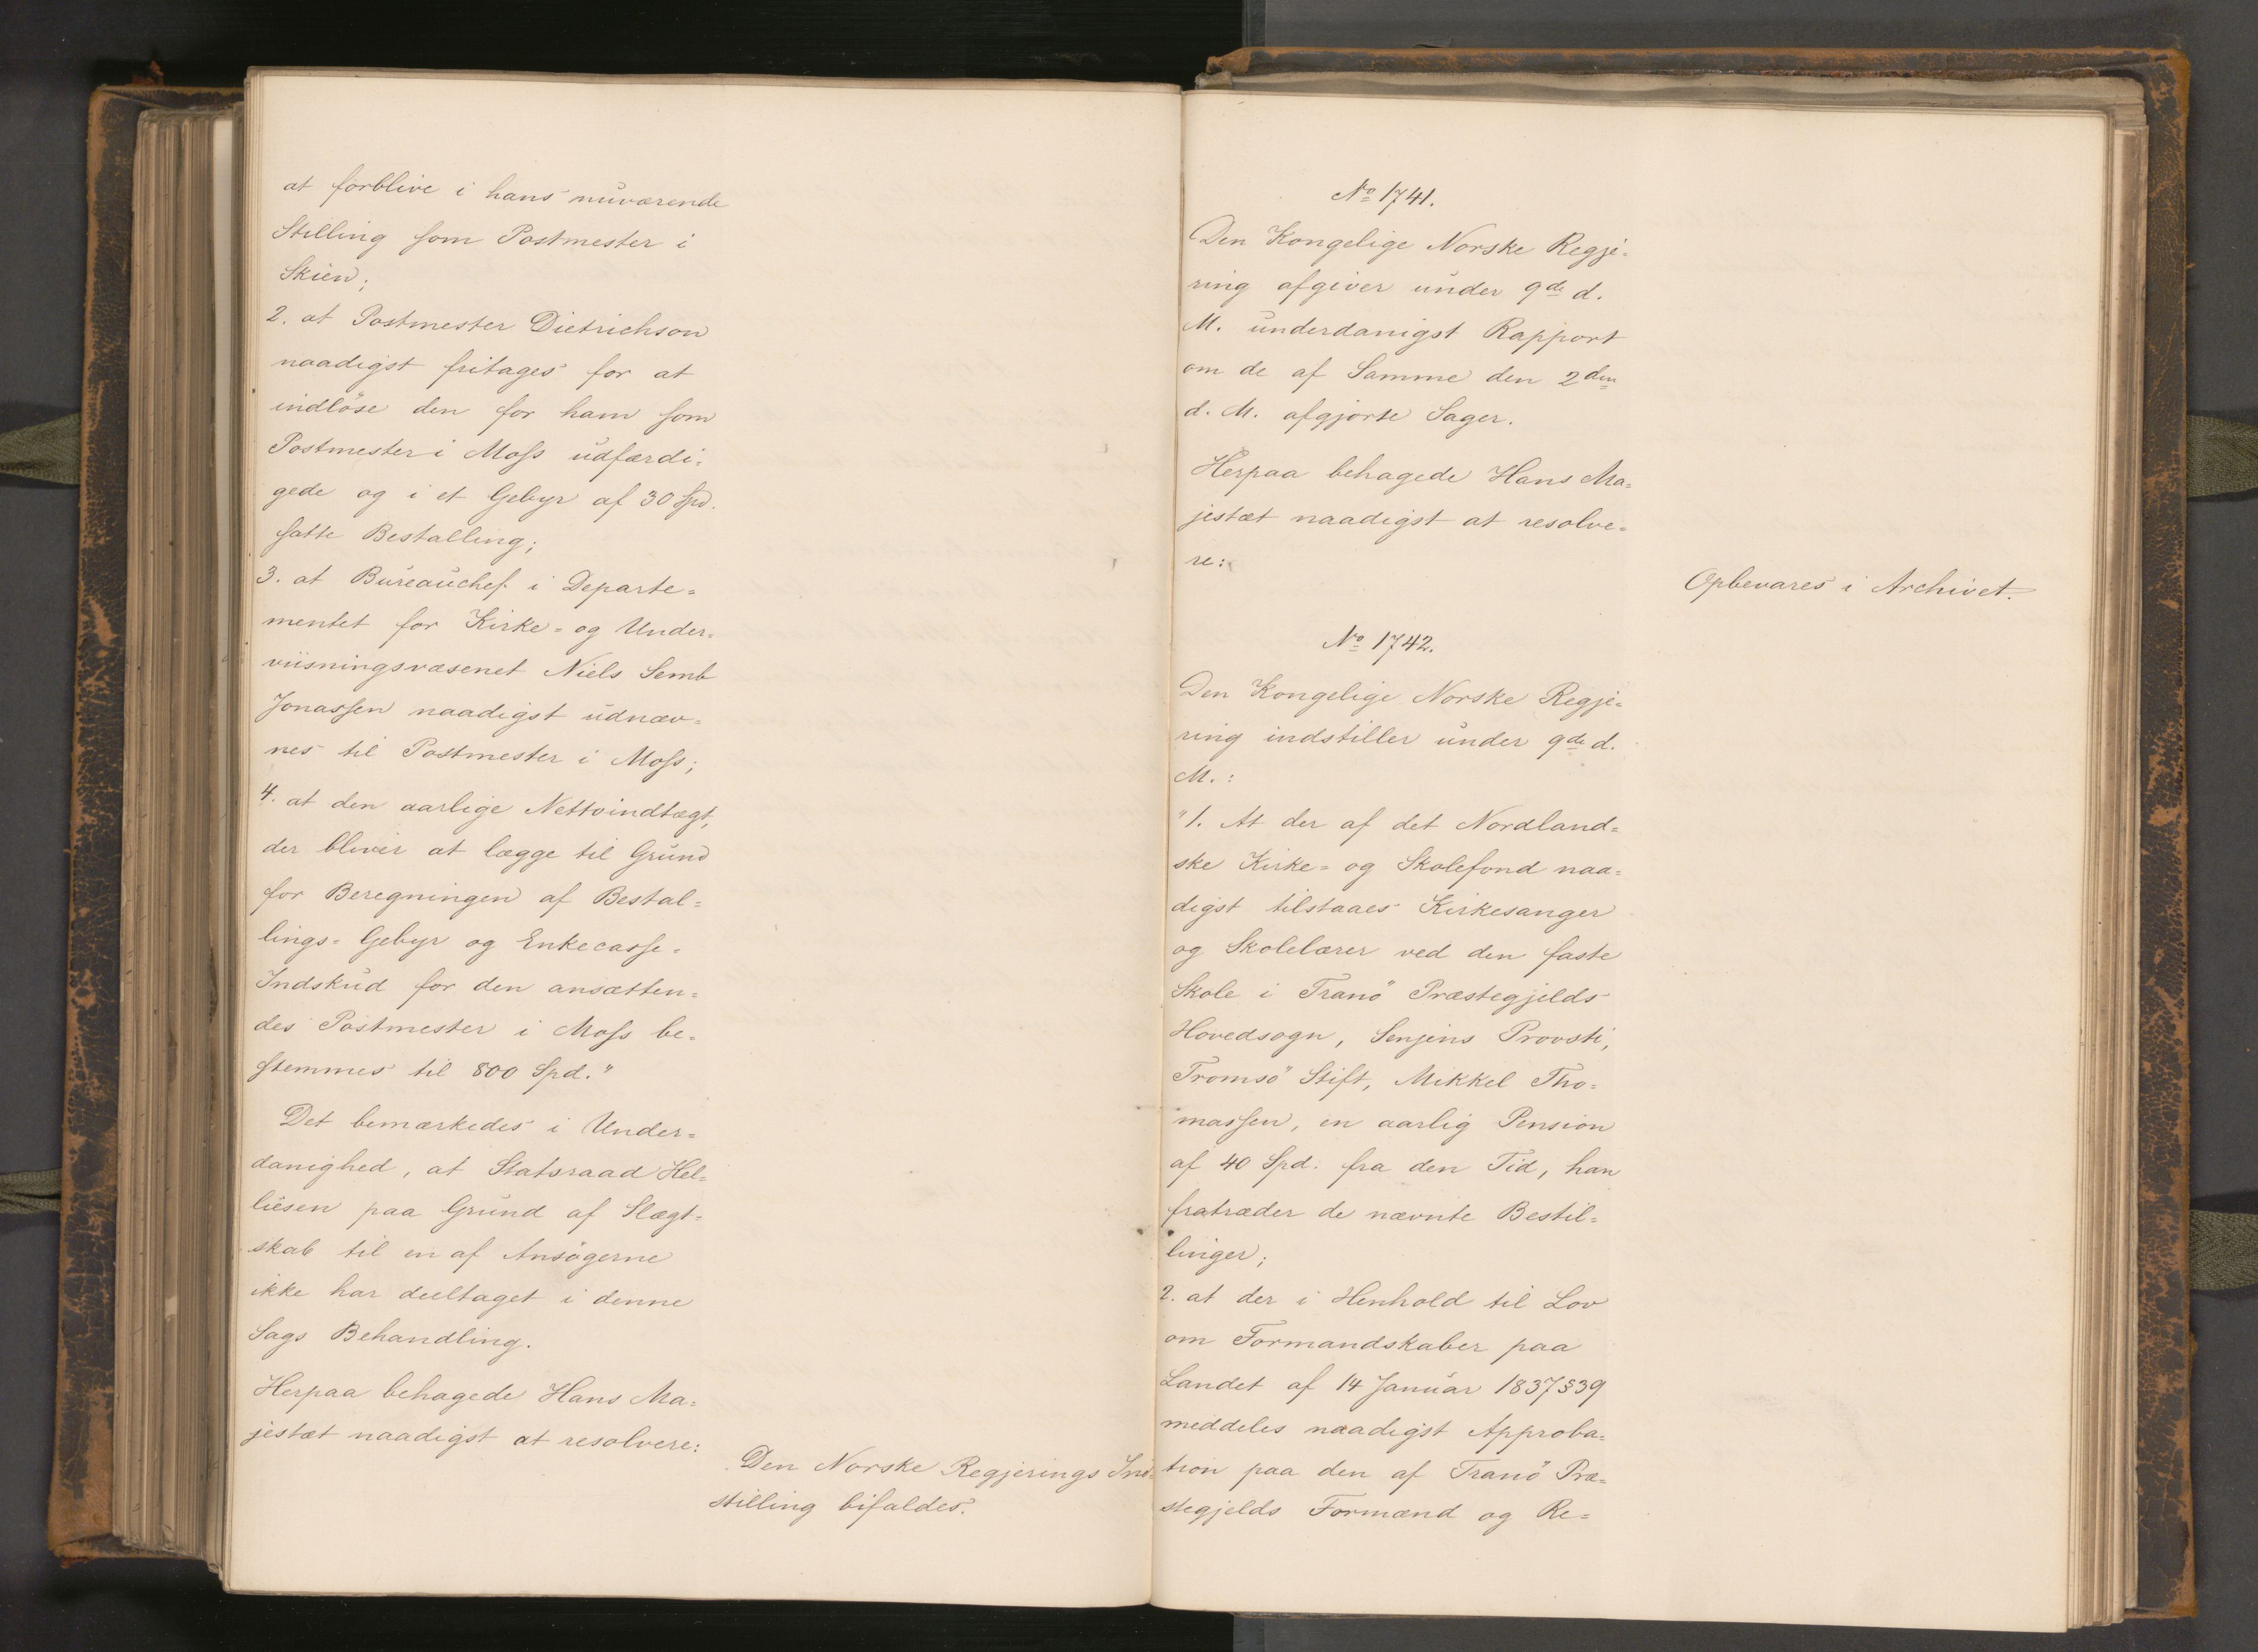 at forblive i hans nuværende
Stilling som Postmester i
Skien;
2. at Postmester Dietrichson
naadigst fritages for at
indlöse den for ham som
Postmester i Moss udfærdi-
gede og i et Gebyr af 30 Spd.
satte Bestalling;
3. at Bureauchef i Departe-
mentet for Kirke- og Under-
viisningsvæsenet Niels Semb
Jonassen naadigst udnæv-
nes til Postmester i Moss;
4. at den aarlige Nettoindtægt,
der bliver at lægge til Grund
for Beregningen af Bestal-
lings-Gebyr og Enkecasse-
Indskud for den ansætten-
des Postmester i Moss be-
stemmes til 800 Spd."
Det bemærkedes i Under-
danighed, at Statsraad Hel-
liesen paa Grund af Slægt-
skab til en af Ansögerne
ikke har deeltaget i denne
Sags Behandling.
Herpaa behagede Hans Ma-
jestæt naadigst at resolvere:
Den Norske Regjerings Ind-
stilling bifaldes.
No 1741.
Den Kongelige Norske Regje-
ring afgiver under 9de d.
M. underdanigst Rapport
om de af Samme den 2den
d. M. afgjorte Sager.
Herpaa behagede Hans Ma-
jestæt naadigst at resolve-
re:
Opbevares i Archivet.
No 1742.
Den Kongelige Norske Regje-
ring indstiller under 9de d.
M.:
"1. At der af det Nordland-
ske Kirke- og Skolefond naa-
digst tilstaaes Kirkesanger
og Skolelærer ved den faste
Skole i Tranö Præstegjelds
Hovedsogn, Senjens Provsti,
Tromsö Stift, Mikkel Tho-
massen, en aarlig Pension
af 40 Spd. fra den Tid, han
fratræder de nævnte Bestil-
linger;
2. at der i Henhold til Lov
om Formandskaber paa
Landet af 14 Januar 1837 § 39
meddeles naadigst Approba-
tion paa den af Tranö Præ-
stegjelds Formænd og Re-